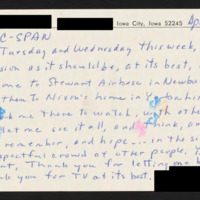 Iowa City, Iowa 52245
C-SPAN
Tuesday and Wednesday this week,
sion as it should be, at its best,
me to Stewart Airbase in Newbu
then to Nixon's home in Yorba
me there to watch, with othe
let me see it all, and think, an
remember, and hope... in the
spectful crowd of other people. Y
Thank you for letting me
nk you for TV at its best.